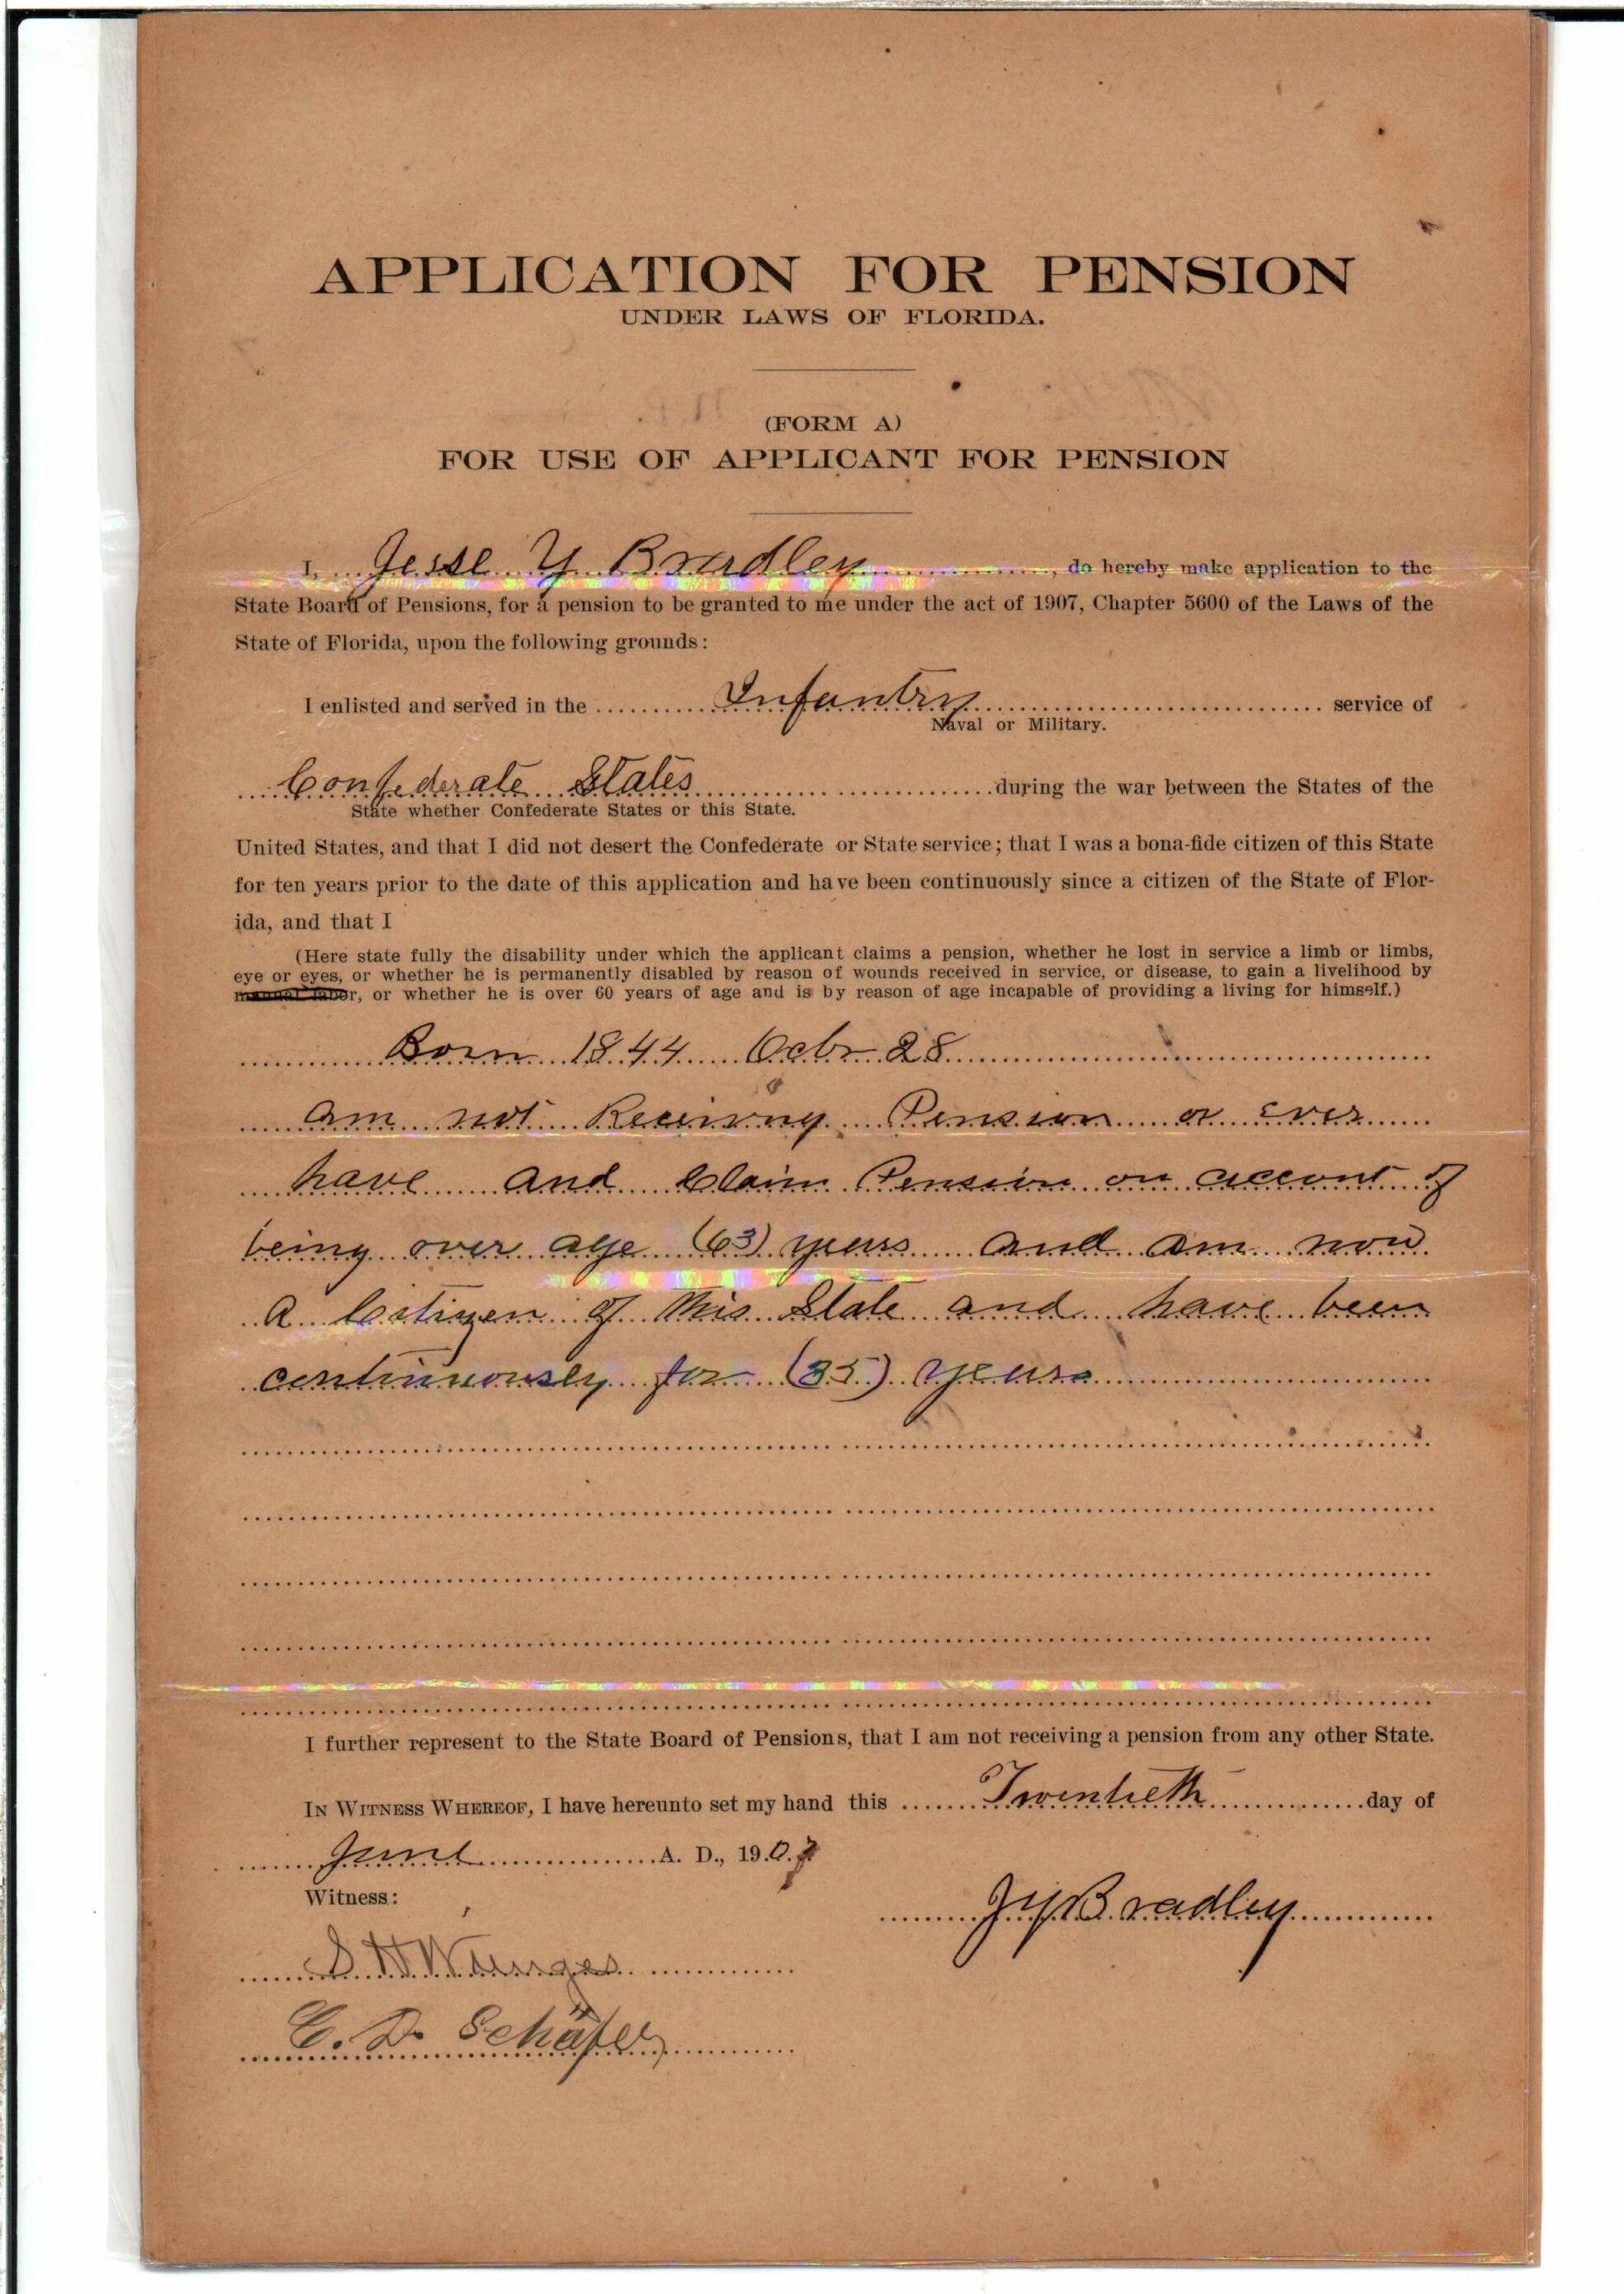 APPLICATION FOR PENSION
UNDER LAWS OF FLORIDA.
(FORM A)
FOR USE OF APPLICANT FOR PENSION
I, Jesse Y Bradley, do hereby make application to the
State Board of Pensions, for a pension to be granted to me under the act of 1907, Chapter 5600 of the Laws of the
State of Florida, upon the following grounds:
I enlisted and served in the Infantry service of
Naval or Military.
Confederate States during the war between the States of the
State whether Confederate States or this State.
United States, and that I did not desert the Confederate or State service; that I was a bona-fide citizen of this State
for ten years prior to the date of this application and have been continuously since a citizen of the State of Flor-
ida, and that I
(Here state fully the disability under which the applicant claims a pension, whether he lost in service a limb or limbs,
eye or eyes, or whether he is permanently disabled by reason of wounds received in service, or disease, to gain a livelihood by
manual labor, or whether he is over 60 years of age and is by reason of age incapable of providing a living for himself.)
Born 1844 Octbr 28
am not Receiving Pension or ever
have and Claim Pension on account of
being over age (63) years and am now
a Citizen of this State and have been
continuously for (35) years
I further represent to the State Board of Pensions, that I am not receiving a pension from any other State.
IN WITNESS WHEREOF, I have hereunto set my hand this Twentieth day of
June A. D., 1907
Witness:
JYBradley
C. D. Schäfer